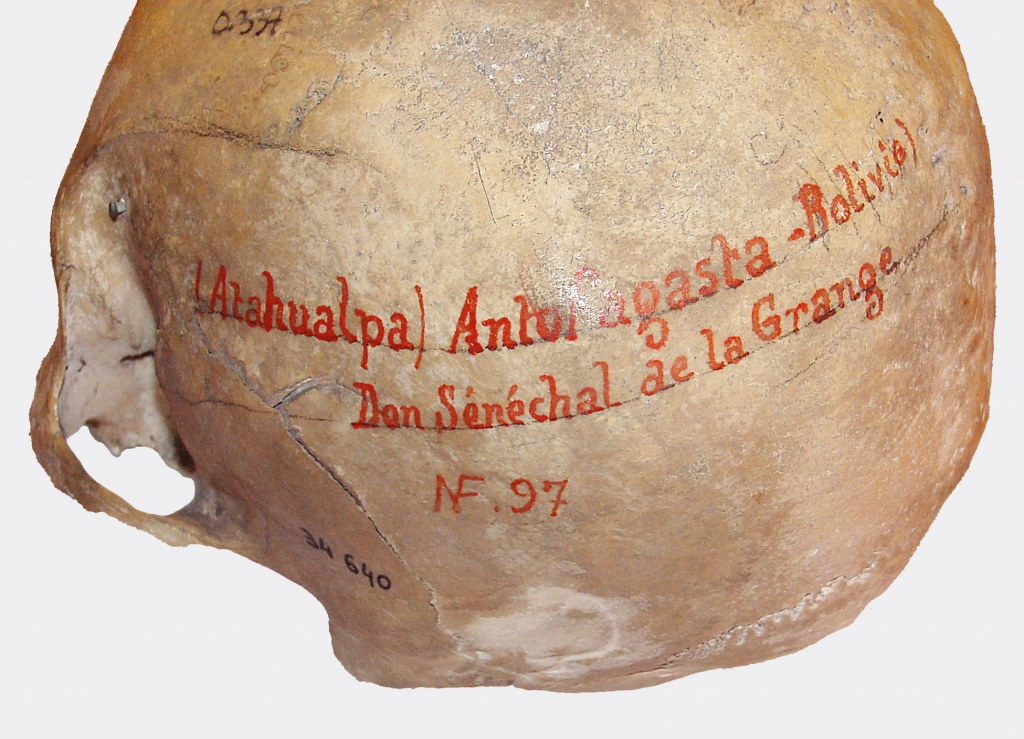 0.337
(Atahualpa) Antofagasta - Bolivie)
Don Sénéchal de la Grange
NF. 97
34 640